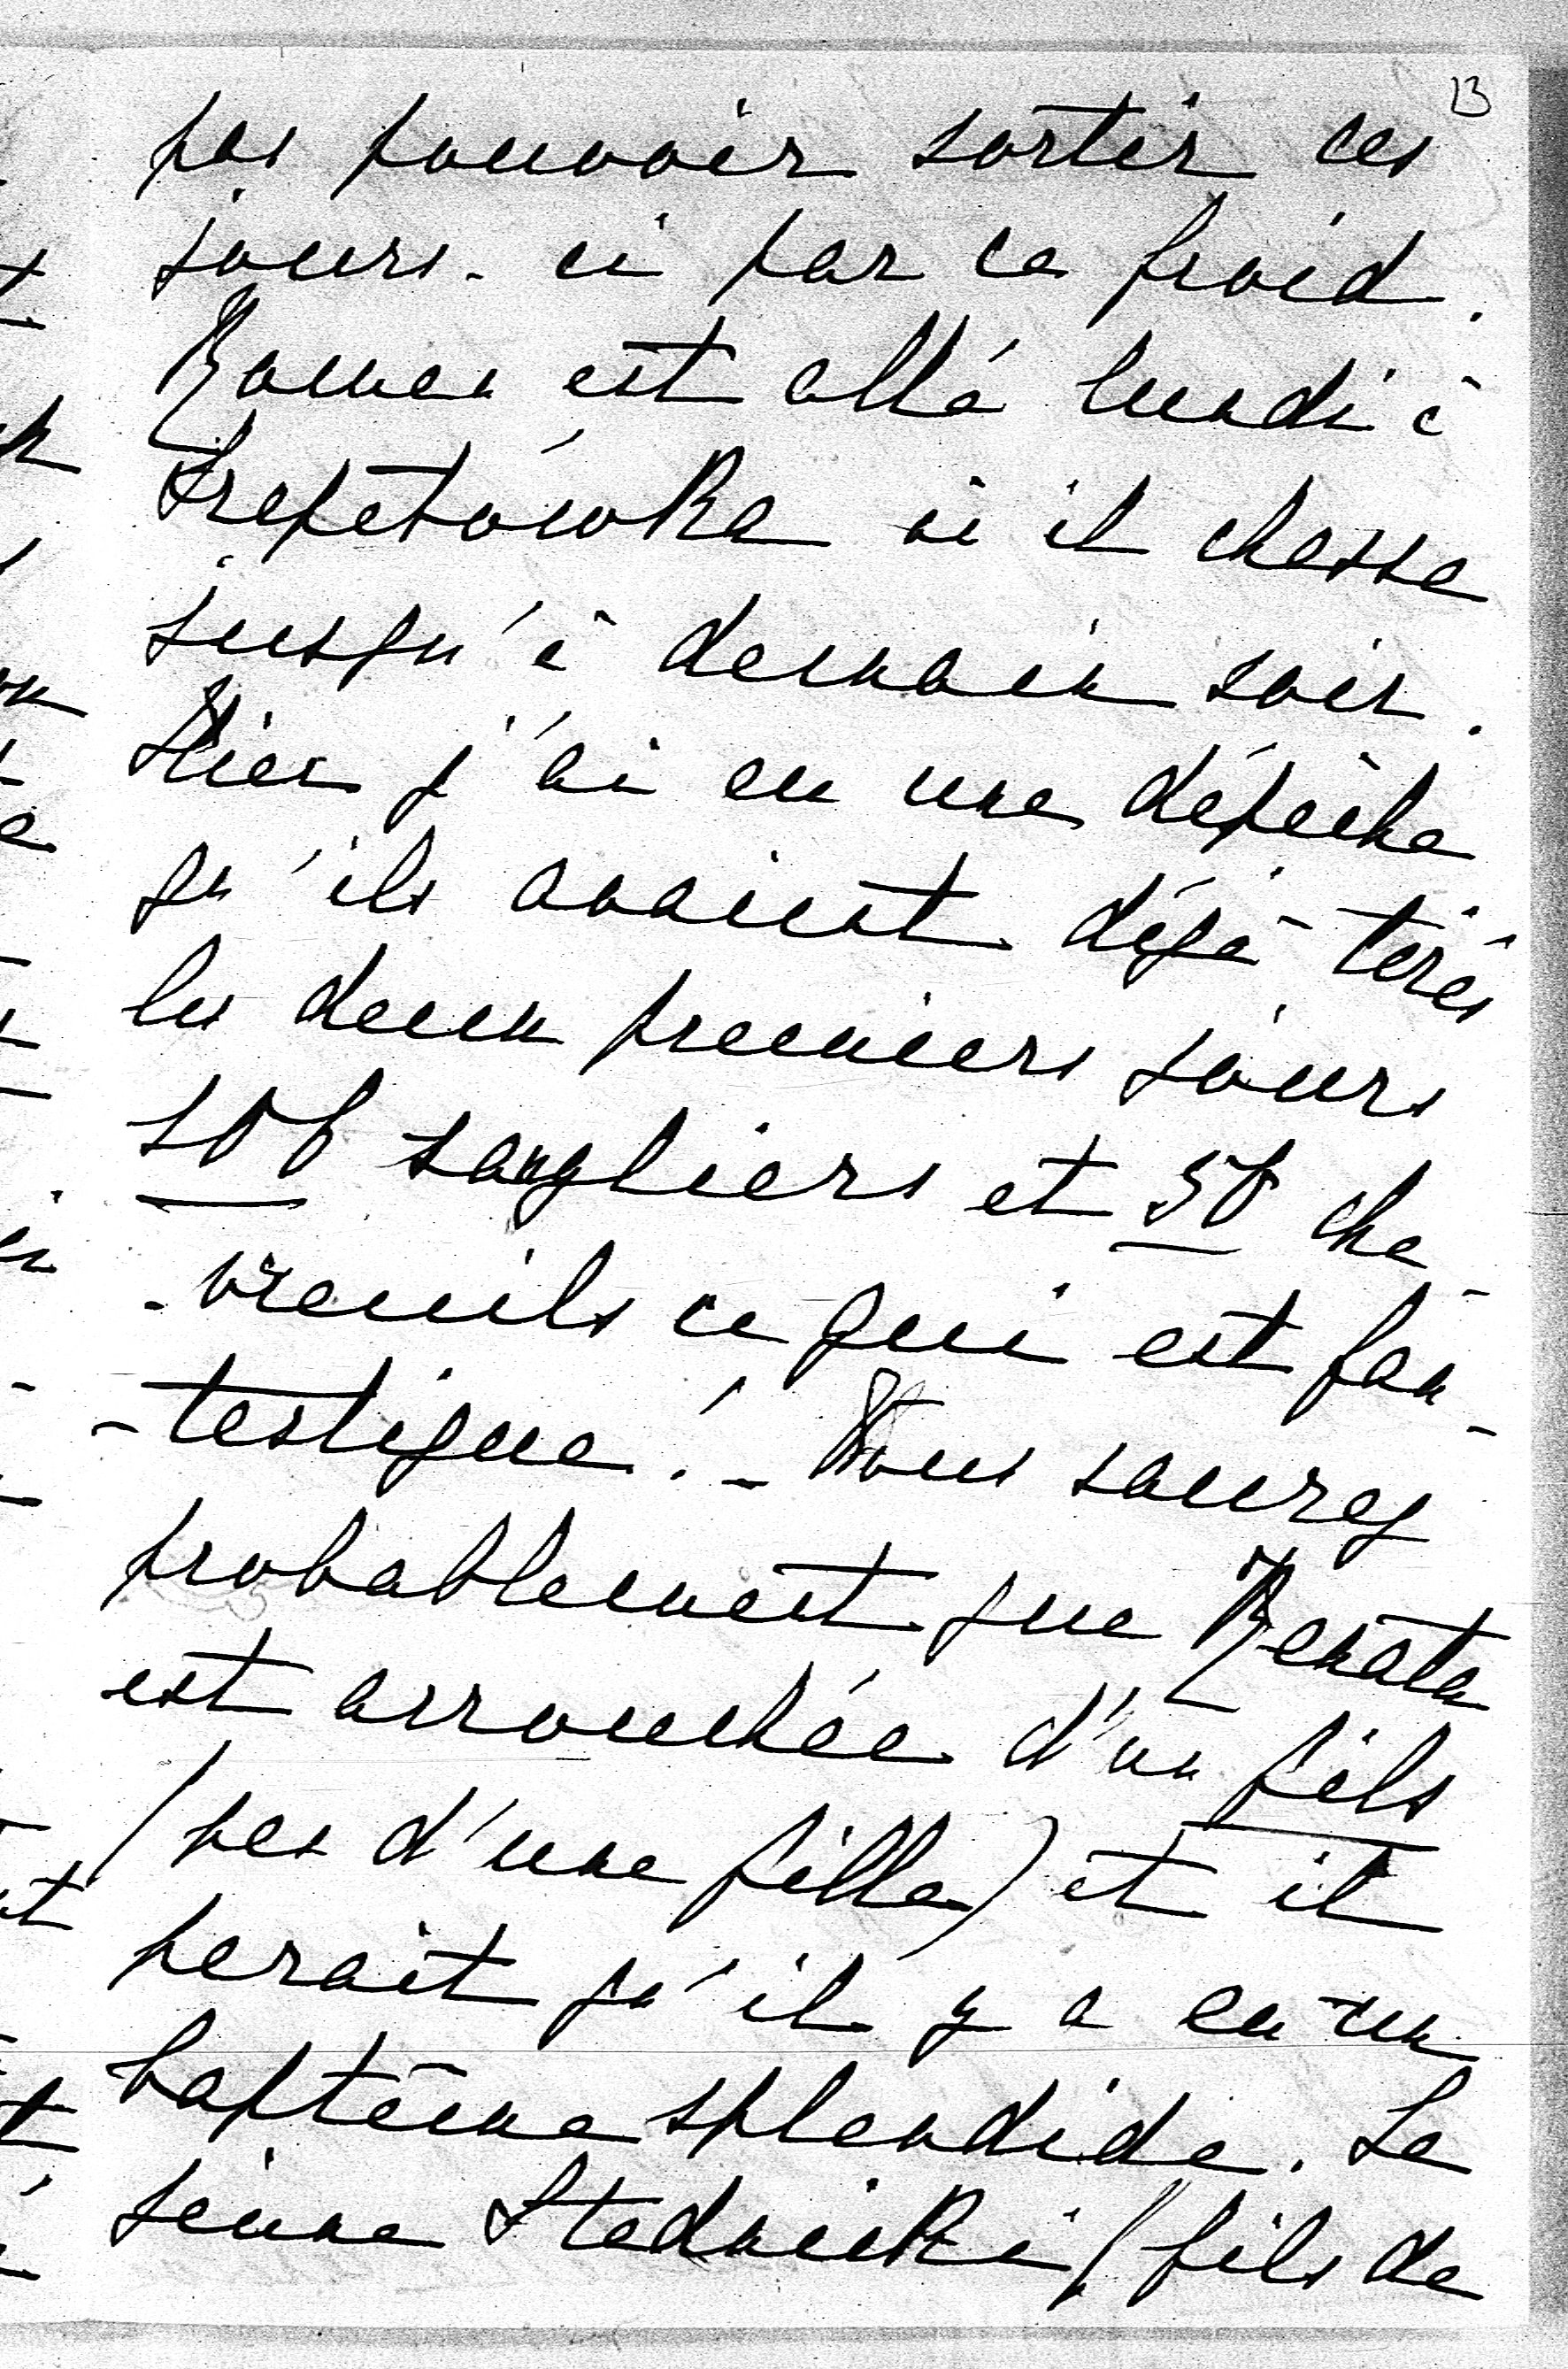 13
pas pouvoir sortir ces
jours-ci par ce froid.
Roman est allé lundi à
Szepetówka où il chasse
jusqu'à demain soir.
Hier j'ai eu une dépêche
qu'ils avaient déjà tirés
les deux premiers jours
106 sangliers et 58 che-
-vreuils ce qui est fan-
-tastique! - Vous saurez
probablement que Renata
est accouchée d'un fils
(pas d'une fille) et il
parait qu'il y a eu un
baptême splendide. Le
jeune Stadnicki (fils de